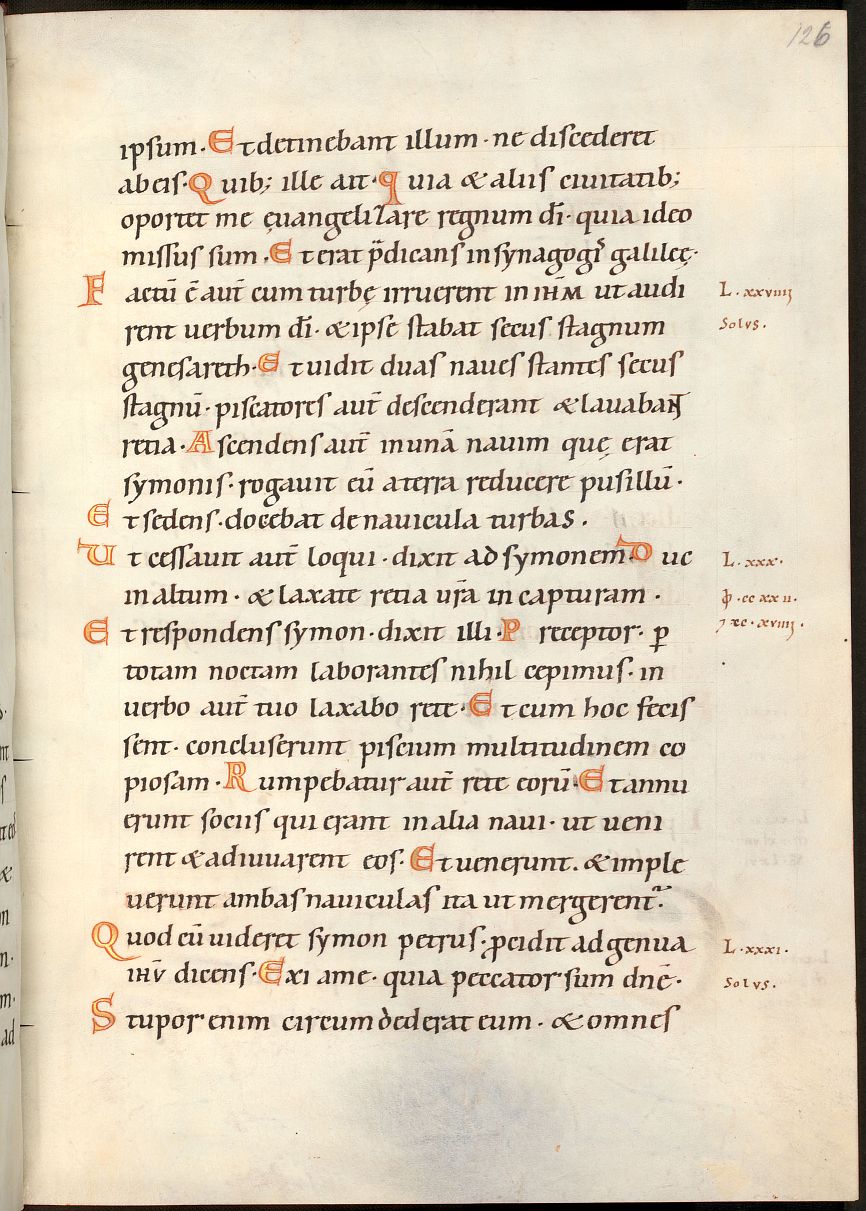 126
ipsum. Et detinebant illum. ne discederet
ab eis. Quib; ille ait. quia & aliis ciuitatib;
oportet me ęuangelizare regnum dī. quia ideo
missus sum. Et erat p̄dicans in synagogis galileę.
Factū ē aut̄ cum turbę irruerent in ihm̄ ut audi
L. xxviiii
rent uerbum dī. & ipse stabat secus stagnum
Solus.
genesareth. Et uidit duas naues stantes secus
stagnū. piscatores aut̄ descenderant & lauabant
retia. Ascendens aut̄ in unā nauim quę erat
symonis. rogauit eū a terra reducere pusillū.
Et sedens. docebat de nauicula turbas.
Ut cessauit aut̄ loqui. dixit ad symonem. Duc
L. xxx.
in altum. & laxate retia ur̄a in capturam.
cc xx ii.
Et respondens symon. dixit illi. Preceptor. ꝑ
totam noctam laborantes nihil cepimus. in
uerbo aut̄ tuo laxabo rete. Et cum hoc fecis
sent. concluserunt piscium multitudinem co
piosam. Rumpebatur aut̄ rete eorū. Et annu
erunt sociis qui erant in alia naui. ut ueni
rent & adiuuarent eos. Et uenerunt. & imple
uerunt ambas nauiculas ita ut mergerent̄.
Quod cū uideret symon petrus. ꝓcidit ad genua
L. xxxi.
ihū dicens. Exi a me. quia peccator sum dnē.
Solus.
Stupor enim circumdederat eum. & omnes